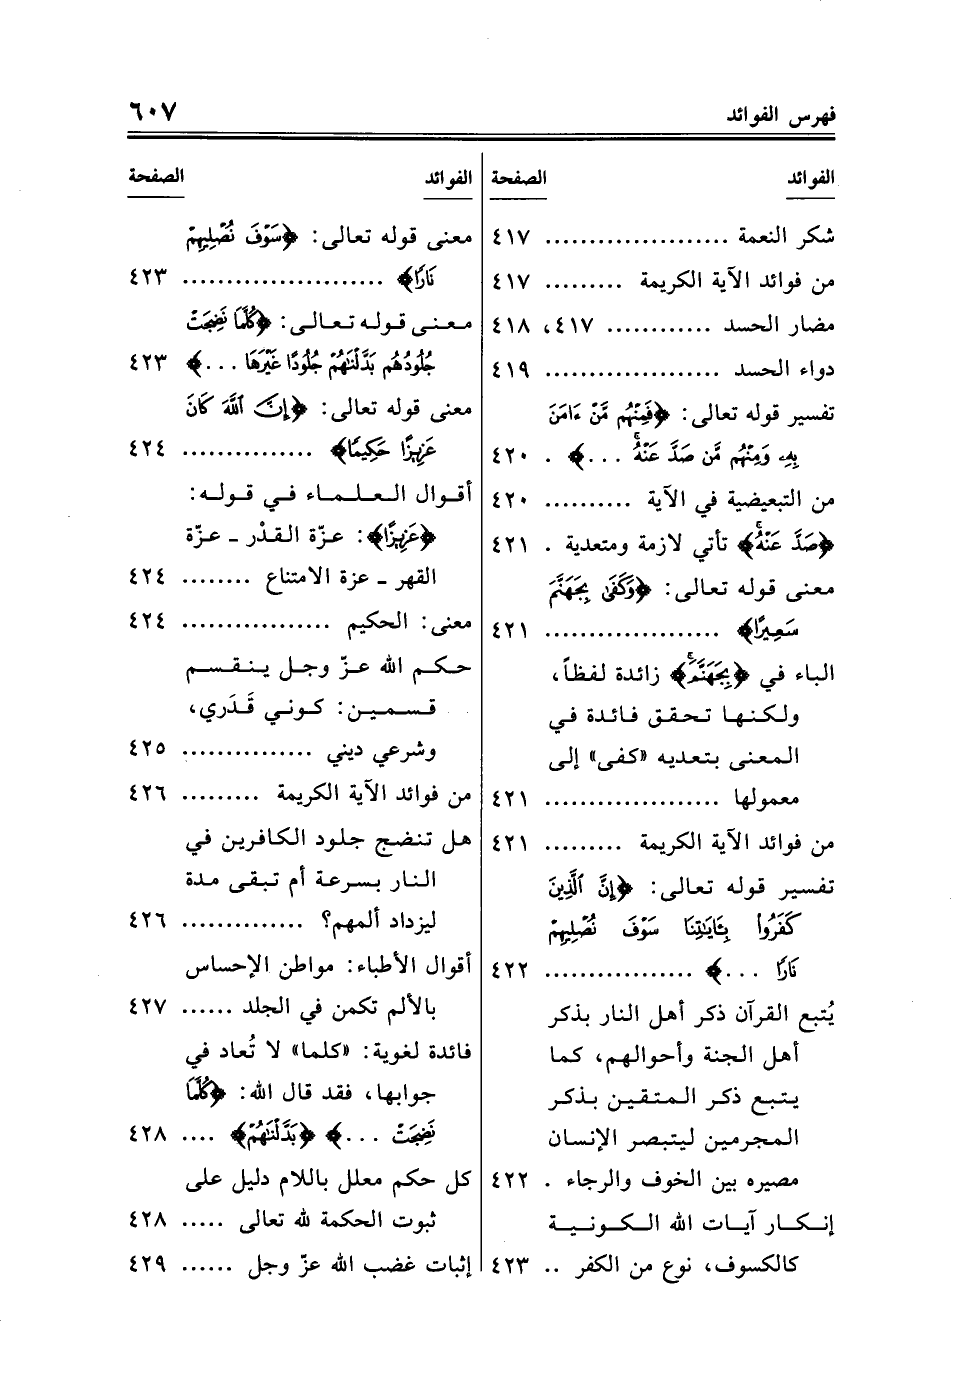 فهرس الفوائد ٦٠٧
الفوائد الصفحة
شكر النعمة ..................... ٤١٧
من فوائد الآية الكريمة ......... ٤١٧
مضار الحسد ............ ٤١٧، ٤١٨
دواء الحسد .................... ٤١٩
تفسير قوله تعالى: ﴿فَمِنْهُم مَّنْ ءَامَنَ
بِهِۦ وَمِنْهُم مَّن صَدَّ عَنْهُ ۚ ...﴾ . ٤٢٠
من التبعيضية في الآية .......... ٤٢٠
﴿صَدَّ عَنْهُ ۚ﴾ تأتي لازمة ومتعدية . ٤٢١
معنى قوله تعالى: ﴿وَكَفَىٰ بِجَهَنَّمَ
سَعِيرًا﴾ .................... ٤٢١
الباء في ﴿بِجَهَنَّمَ ۚ﴾ زائدة لفظاً،
ولكنها تحقق فائدة في
المعنى بتعديه «كفى» إلى
معمولها .................... ٤٢١
من فوائد الآية الكريمة ......... ٤٢١
تفسير قوله تعالى: ﴿إِنَّ ٱلَّذِينَ
كَفَرُوا۟ بِـَٔايَـٰتِنَا سَوْفَ نُصْلِيهِمْ
نَارًا ...﴾ ................. ٤٢٢
يُتبع القرآن ذكر أهل النار بذكر
أهل الجنة وأحوالهم، كما
يتبع ذكر المتقين بذكر
المجرمين ليتبصر الإنسان
مصيره بين الخوف والرجاء . ٤٢٢
إنكار آيات الله الكونية
كالكسوف، نوع من الكفر .. ٤٢٣
الفوائد الصفحة
معنى قوله تعالى: ﴿سَوْفَ نُصْلِيهِمْ
نَارًا﴾ ....................... ٤٢٣
معنى قوله تعالى: ﴿كُلَّمَا نَضِجَتْ
جُلُودُهُم بَدَّلْنَـٰهُمْ جُلُودًا غَيْرَهَا ...﴾ ٤٢٣
معنى قوله تعالى: ﴿إِنَّ ٱللَّهَ كَانَ
عَزِيزًا حَكِيمًا﴾ ............... ٤٢٤
أقوال العلماء في قوله:
﴿عَزِيزًا﴾: عزّة القدْر ـ عزّة
القهر ـ عزة الامتناع ........ ٤٢٤
معنى: الحكيم ................. ٤٢٤
حكم الله عزّ وجل ينقسم
قسمين: كوني قَدَري،
وشرعي ديني ............... ٤٢٥
من فوائد الآية الكريمة ......... ٤٢٦
هل تنضج جلود الكافرين في
النار بسرعة أم تبقى مدة
ليزداد ألمهم؟ .............. ٤٢٦
أقوال الأطباء: مواطن الإحساس
بالألم تكمن في الجلد ...... ٤٢٧
فائدة لغوية: «كلما» لا تُعاد في
جوابها، فقد قال الله: ﴿كُلَّمَا
نَضِجَتْ ...﴾ ﴿بَدَّلْنَـٰهُمْ﴾ .... ٤٢٨
كل حكم معلل باللام دليل على
ثبوت الحكمة لله تعالى ..... ٤٢٨
إثبات غضب الله عزّ وجل ...... ٤٢٩